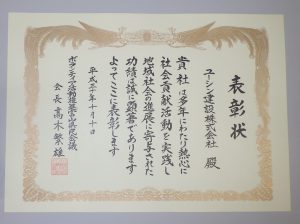 表彰状
ユーシン建設株式会社 殿
貴社は多年にわたり熱心に
社会貢献活動を実践し
地域社会の進展に寄与された
功績は誠に顕著であります
よってここに表彰します
平成三十年十月十日
ボランティア活動推進富山県民会議
会長 高木繁雄